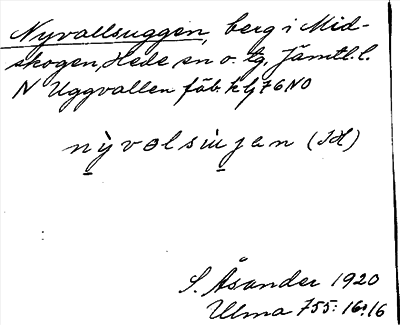 Nyvallsuggen, berg i Mid-
skogen, Hede sn o. tg, Jämtl. l.
N Uggvallen fäb. klj 76 NO
nỳvolsiùjan (IH)
S. Åsander 1920
Ulma 755: 16:16